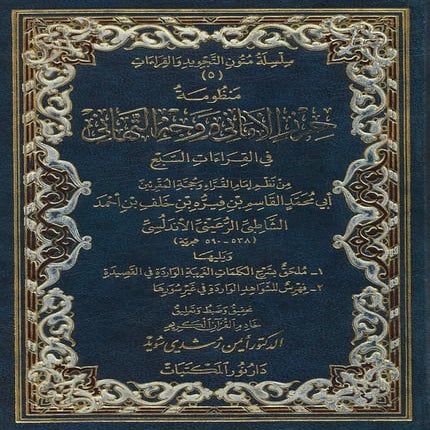 سِلْسِلَةُ مُتُونِ التَّجْوِيدِ وَالقِرَاءَاتِ
(٥)
مَنظُومَةُ
حِرْزُ الأَمَانِي وَوَجْهُ التَّهَانِي
فِي القِرَاءَاتِ السَّبْعِ
مِنْ نَظْمِ إِمَامِ القُرَّاءِ وَحُجَّةِ المُقْرِئِينَ
أَبِي مُحَمَّدٍ القَاسِمِ بْنِ فِيرُّهْ بْنِ خَلَفِ بْنِ أَحْمَدَ
الشَّاطِبِيِّ الرُّعَيْنِيِّ الأَنْدَلُسِيِّ
(٥٣٨ - ٥٩٠ هجرية)
وَيَلِيهَا
١- مُلْحَقٌ بِشَرْحِ الكَلِمَاتِ الغَرِيبَةِ الوَارِدَةِ فِي القَصِيدَةِ
٢- فِهْرِسٌ لِلشَّوَاهِدِ الوَارِدَةِ فِي غَيْرِ سُوَرِهَا
تحقيق وضبط وتعليق
خَادِمِ القُرْآنِ الكَرِيمِ
الدكتور أيمن رشدي سويد
دَارُ نُورِ المَكْتَبَاتِ